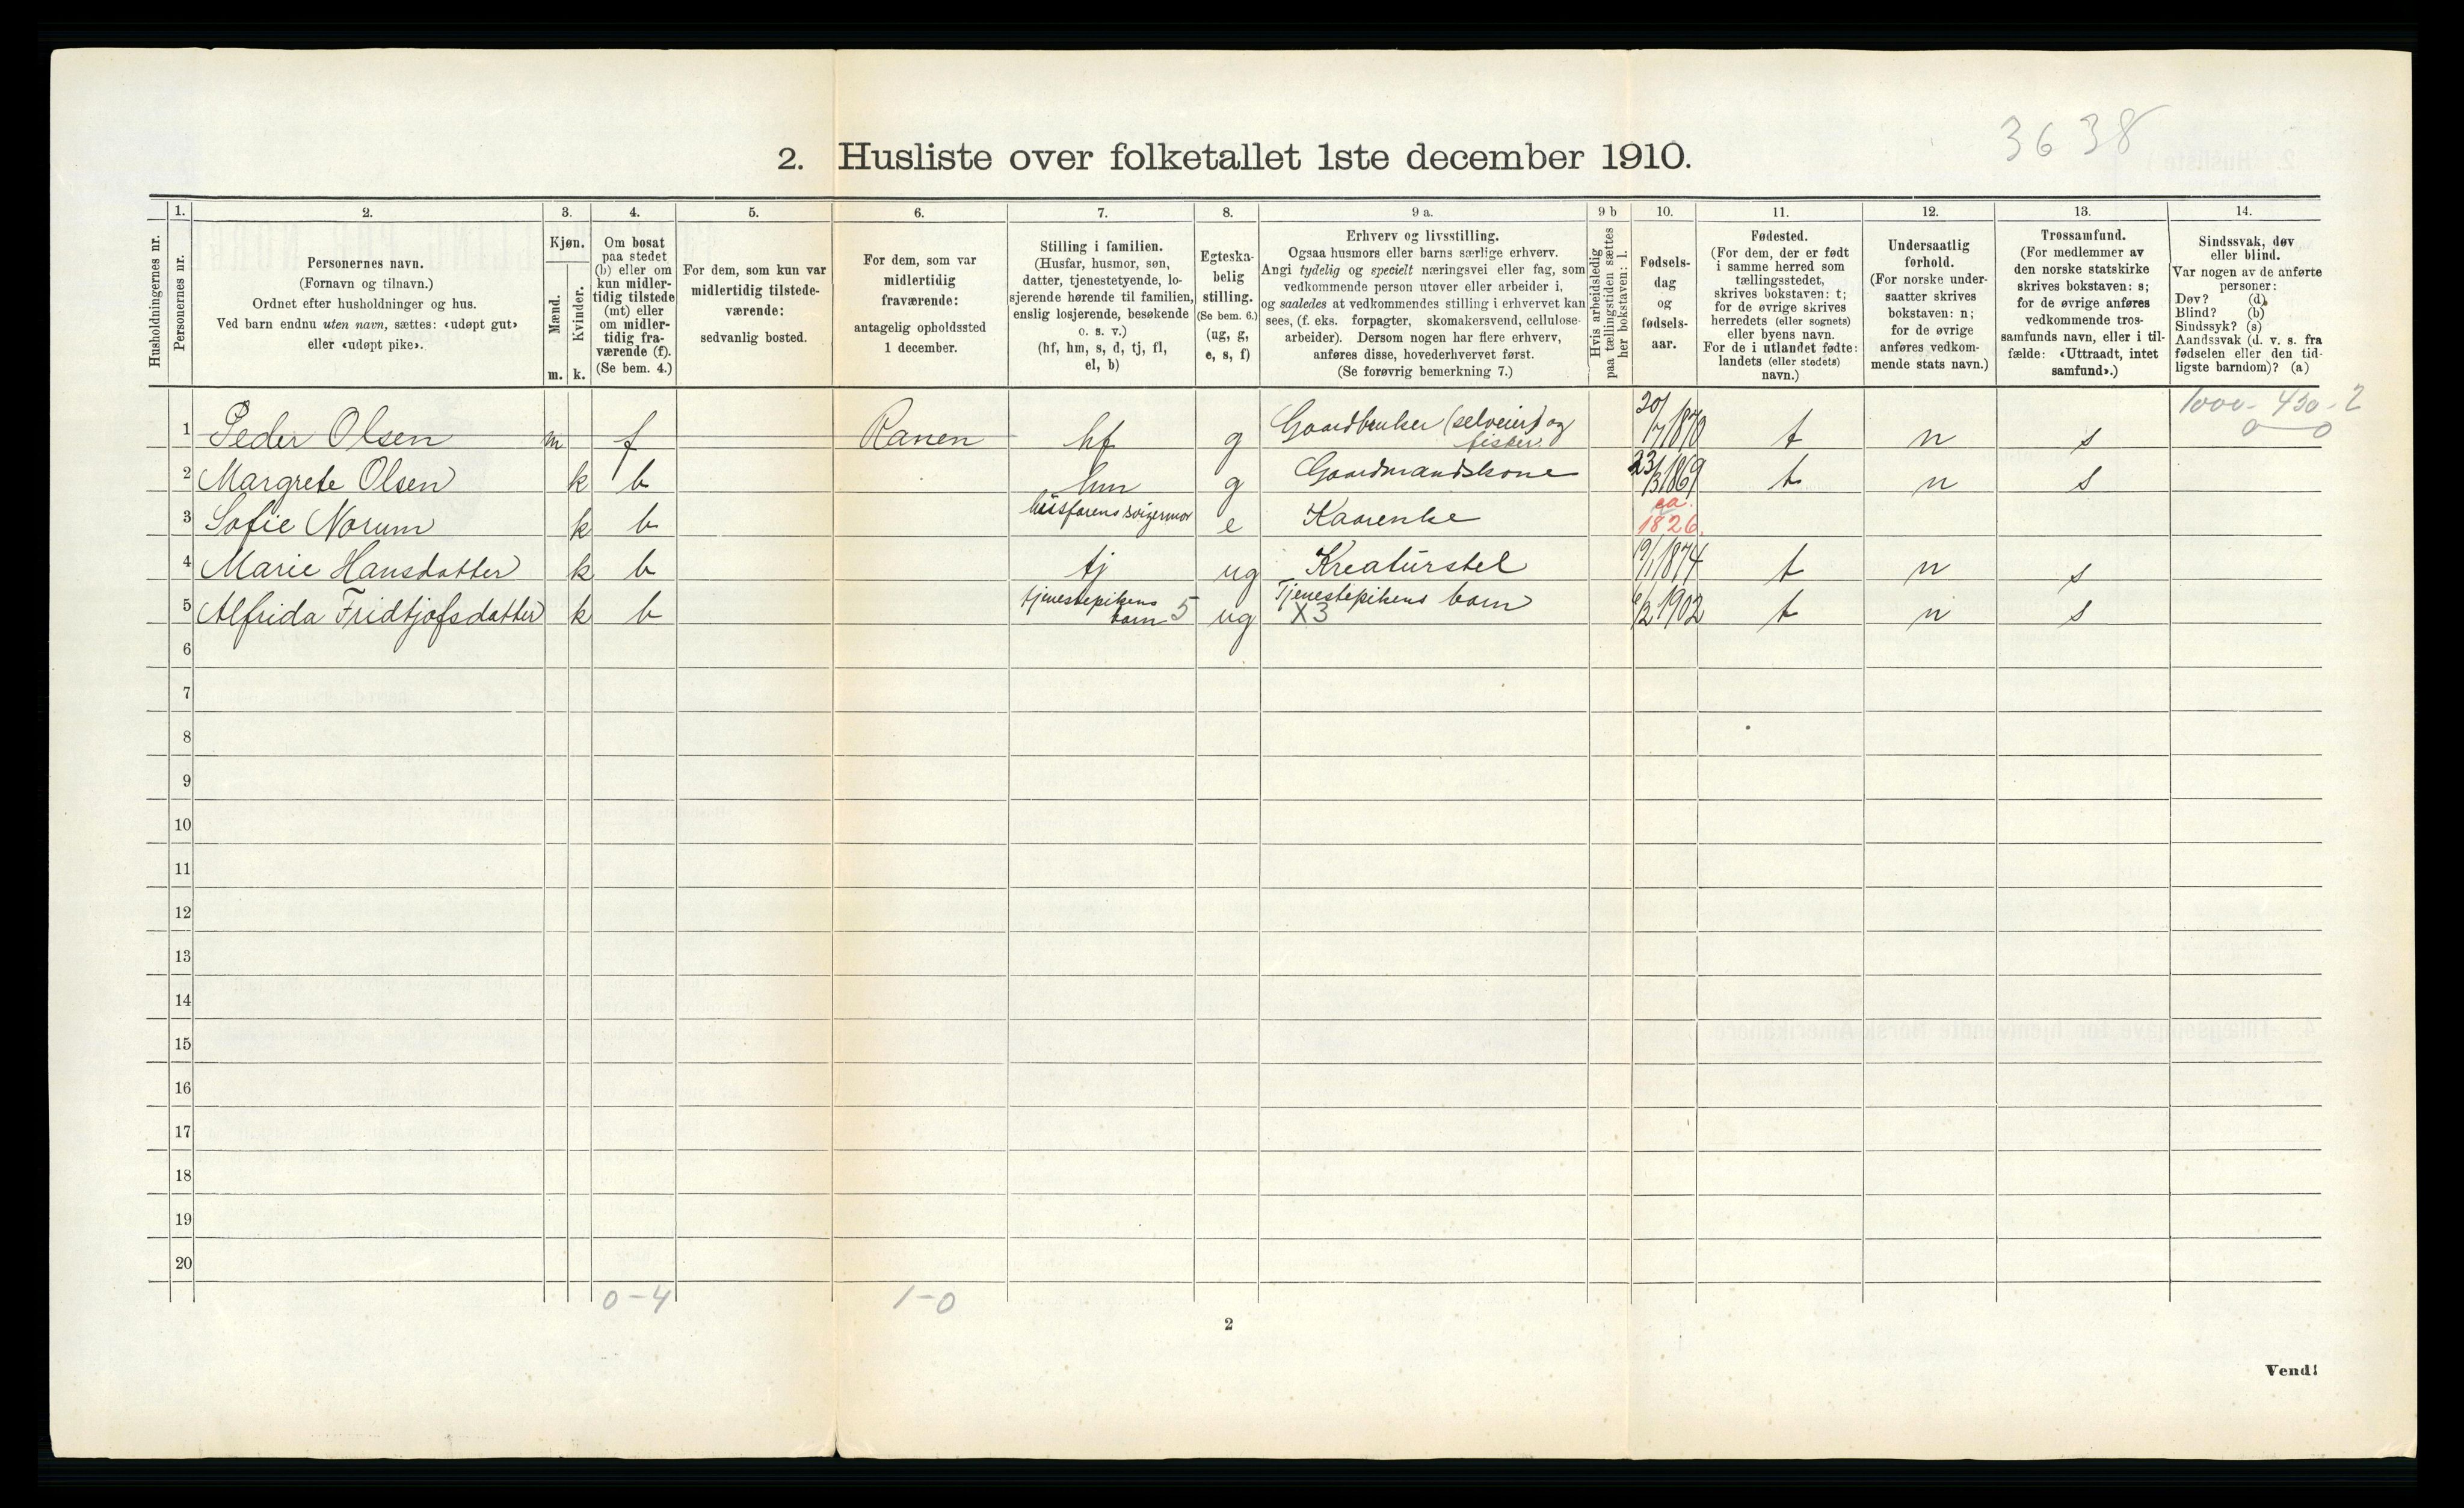 3638
2. Husliste over folketallet 1ste december 1910.
1. 2. 3. 4. 5. 6. 7. 8. 9 a. 9 b 10. 11. 12. 13. 14.
Husholdningernes nr.
Personernes nr.
Personernes navn.
(Fornavn og tilnavn.)
Ordnet efter husholdninger og hus.
Ved barn endnu uten navn, sættes: «udøpt gut»
eller «udøpt pike».
Kjøn.
Mænd.
Kvinder.
m. k.
Om bosat
paa stedet
(b) eller om
kun midler-
tidig tilstede
(mt) eller
om midler-
tidig fra-
værende (f).
(Se bem. 4.)
For dem, som kun var
midlertidig tilstede-
værende:
sedvanlig bosted.
For dem, som var
midlertidig
fraværende:
antagelig opholdssted
1 december.
Stilling i familien.
(Husfar, husmor, søn,
datter, tjenestetyende, lo-
sjerende hørende til familien,
enslig losjerende, besøkende
o. s. v.)
(hf, hm, s, d, tj, fl,
el, b)
Egteska-
belig
stilling.
(Se bem. 6.)
(ug, g,
e, s, f)
Erhverv og livsstilling.
Ogsaa husmors eller barns særlige erhverv.
Angi tydelig og specielt næringsvei eller fag, som
vedkommende person utøver eller arbeider i,
og saaledes at vedkommendes stilling i erhvervet kan
sees, (f. eks. forpagter, skomakersvend, cellulose-
arbeider). Dersom nogen har flere erhverv,
anføres disse, hovederhvervet først.
(Se forøvrig bemerkning 7.)
Hvis arbeidsledig
paa tællingstiden sættes
her bokstaven: l.
Fødsels-
dag
og
fødsels-
aar.
Fødested.
(For dem, der er født
i samme herred som
tællingsstedet,
skrives bokstaven: t;
for de øvrige skrives
herredets (eller sognets)
eller byens navn.
For de i utlandet fødte:
landets (eller stedets)
navn.)
Undersaatlig
forhold.
(For norske under-
saatter skrives
bokstaven: n;
for de øvrige
anføres vedkom-
mende stats navn.)
Trossamfund.
(For medlemmer av
den norske statskirke
skrives bokstaven: s;
for de øvrige anføres
vedkommende tros-
samfunds navn, eller i til-
fælde: «Uttraadt, intet
samfund».)
Sindssvak, døv
eller blind.
Var nogen av de anførte
personer:
Døv? (d)
Blind? (b)
Sindssyk? (s)
Aandssvak (d. v. s. fra
fødselen eller den tid-
ligste barndom)? (a)
1000 - 430 - 2
0 0
1 Peder Olsen m f Ranen hf g Gaardbruker (selveier) og fisker. 20/7 1870 t n s
2 Margrete Olsen k b hm g Gaardmandskone 23/3 1869 t n s
3 Sofie Norum k b husfarens svigermor e Kaarenke ca. 1826.
4 Marie Hansdatter k b tj ug Kreaturstel 19/1 1874 t n s
5 Alfrida Fridtjofsdatter k b tjenestepikens barn 5 ug Tjenestepikens barn X3 6/2 1902 t n s
6
7
8
9
10
11
12
13
14
15
16
17
18
19
20
0 - 4 1 - 0
2
Vend!